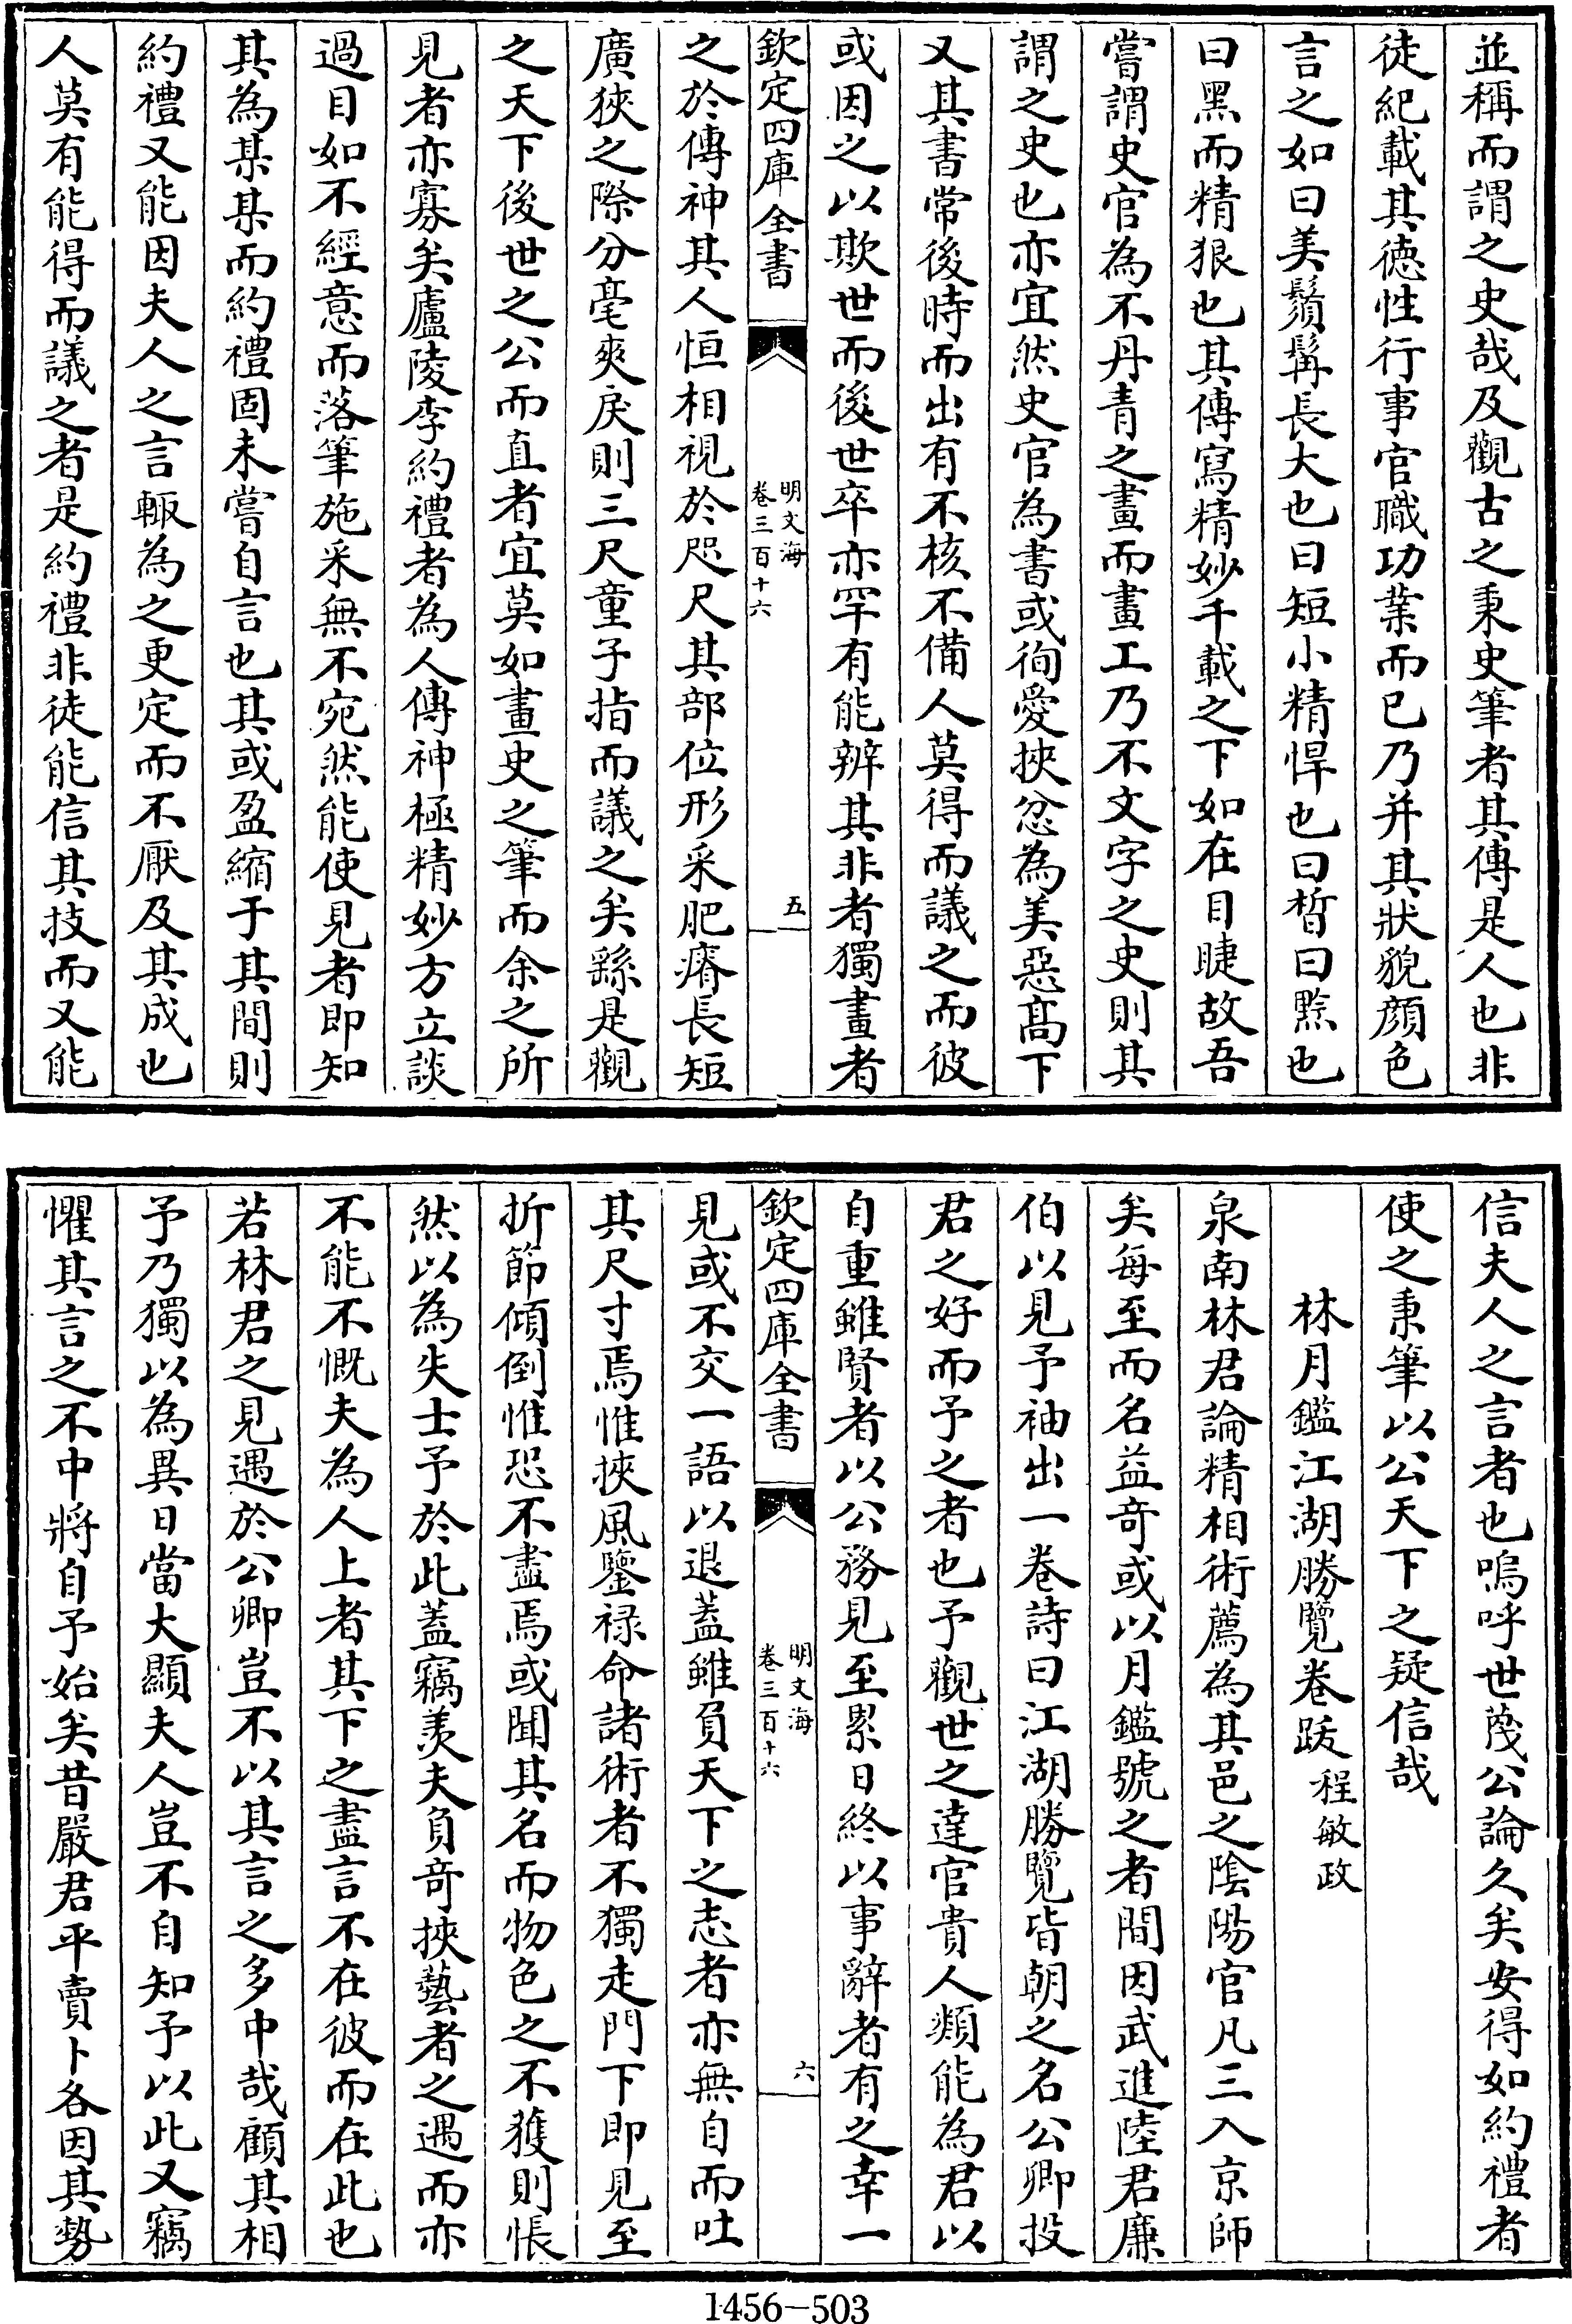 並稱而謂之史哉及觀古之秉史筆者其傳是人也非
徒紀載其徳性行事官職功業而已乃并其狀貌顔色
言之如曰美鬚髯長大也曰短小精悍也曰皙曰黙也
曰黑而精狠也其傳寫精妙千載之下如在目睫故吾
嘗謂史官為不丹青之畫而畫工乃不文字之史則其
謂之史也亦宜然史官為書或徇愛挾忿為美惡髙下
又其書常後時而出有不核不備人莫得而議之而彼
或因之以欺世而後世卒亦罕有能辨其非者獨畫者
欽定四庫全書
明文海
卷三百十六
五
之於傳神其人恒相視於咫尺其部位形采肥瘠長短
廣狹之際分毫爽戾則三尺童子指而議之矣繇是觀
之天下後世之公而直者宜莫如畫史之筆而余之所
見者亦寡矣廬陵李約禮者為人傳神極精妙方立談
過目如不經意而落筆施采無不宛然能使見者即知
其為某某而約禮固未嘗自言也其或盈縮于其間則
約禮又能因夫人之言輙為之更定而不厭及其成也
人莫有能得而議之者是約禮非徒能信其技而又能
信夫人之言者也嗚呼世蔑公論久矣安得如約禮者
使之秉筆以公天下之疑信哉
林月鑑江湖勝覽卷跋 程敏政
泉南林君論精相術薦為其邑之陰陽官凡三入京師
矣每至而名益竒或以月鑑號之者間因武進陸君廉
伯以見予袖出一卷詩曰江湖勝覽皆朝之名公卿投
君之好而予之者也予觀世之達官貴人類能為君以
自重雖賢者以公務見至累日終以事辭者有之幸一
欽定四庫全書
明文海
卷三百十六
六
見或不交一語以退蓋雖負天下之志者亦無自而吐
其尺寸焉惟挾風鑒祿命諸術者不獨走門下即見至
折節傾倒惟恐不盡焉或聞其名而物色之不獲則悵
然以為失士予於此蓋竊羨夫負竒挾藝者之遇而亦
不能不慨夫為人上者其下之盡言不在彼而在此也
若林君之見遇於公卿豈不以其言之多中哉顧其相
予乃獨以為異日當大顯夫人豈不自知予以此又竊
懼其言之不中將自予始矣昔嚴君平賣卜各因其勢
1456-503